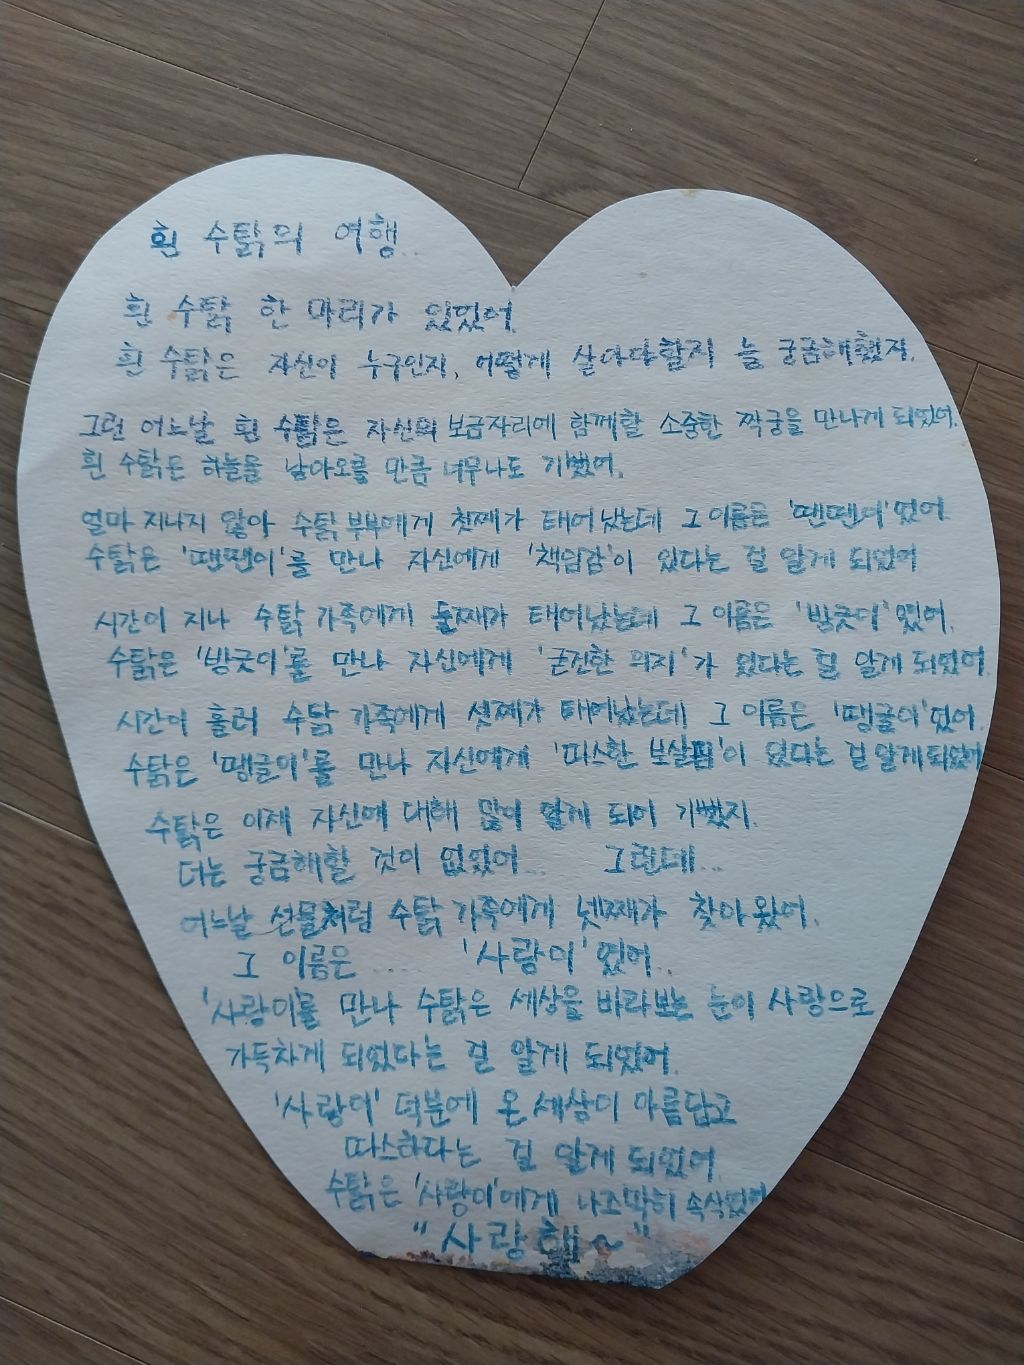 흰 수탉의 여행..
흰 수탉 한 마리가 있었어.
흰 수탉은 자신이 누구인지, 어떻게 살아야할지 늘 궁금해했지.
그런 어느날 흰 수탉은 자신의 보금자리에 함께할 소중한 짝궁을 만나게 되었어.
흰 수탉은 하늘을 날아오를 만큼 너무나도 기뻤어.
얼마 지나지 않아 수탉 부부에게 첫째가 태어났는데 그 이름은 '땐땐이'였어.
수탉은 '땐땐이'를 만나 자신에게 '책임감'이 있다는 걸 알게 되었어
시간이 지나 수탉 가족에게 둘째가 태어났는데 그 이름은 '방긋이'였어.
수탉은 '방긋이'를 만나 자신에게 '굳건한 의지'가 있다는 걸 알게 되었어.
시간이 흘러 수탉 가족에게 셋째가 태어났는데 그 이름은 '땡글이'였어.
수탉은 '땡글이'를 만나 자신에게 '따스한 보살핌'이 있다는 걸 알게되었어
수탉은 이제 자신에 대해 많이 알게 되어 기뻤지.
더는 궁금해할 것이 없었어... 그런데...
어느날 선물처럼 수탉 가족에게 넷째가 찾아왔어.
그 이름은 ..... '사랑이'였어..
'사랑이'를 만나 수탉은 세상을 바라보는 눈이 사랑으로
가득차게 되었다는 걸 알게 되었어.
'사랑이' 덕분에 온 세상이 아름답고
따스하다는 걸 알게 되었어.
수탉은 '사랑이'에게 나즈막히 속삭였어
"사랑해~"